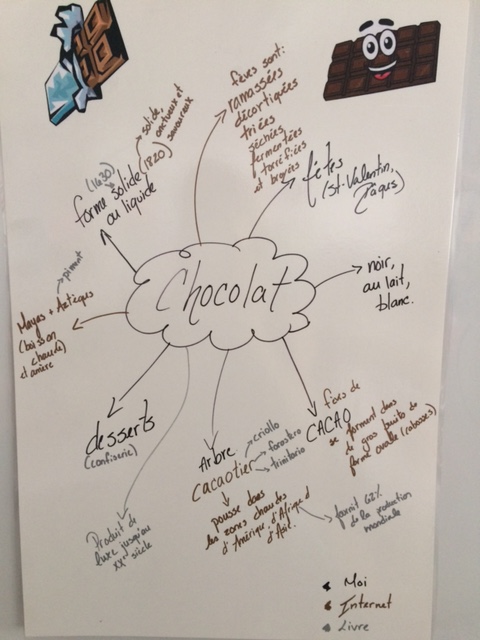 fèves sont:
ramassées
décortiquées
triées
séchées
fermentées
torréfiées
et broyées
solide,
onctueux et
savoureux
(1630) (1820)
forme solide
ou liquide
fêtes
(St-Valentin,
Pâques)
piment
Mayas + Aztèques
(boisson
chaude
et amère)
Chocolat
noir,
au lait,
blanc.
desserts
(confiserie)
Produit de
luxe jusqu'au
XXe siècle
Arbre
cacaotier
criollo
forastero
trinitario
pousse dans
les zones chaudes
d'Amérique, d'Afrique, d'
d'Asie.
fournit 62%
de la production
mondiale
fèves de
CACAO
se forment dans
de gros fruits de
forme ovale (cabosses)
Moi
Internet
Livre